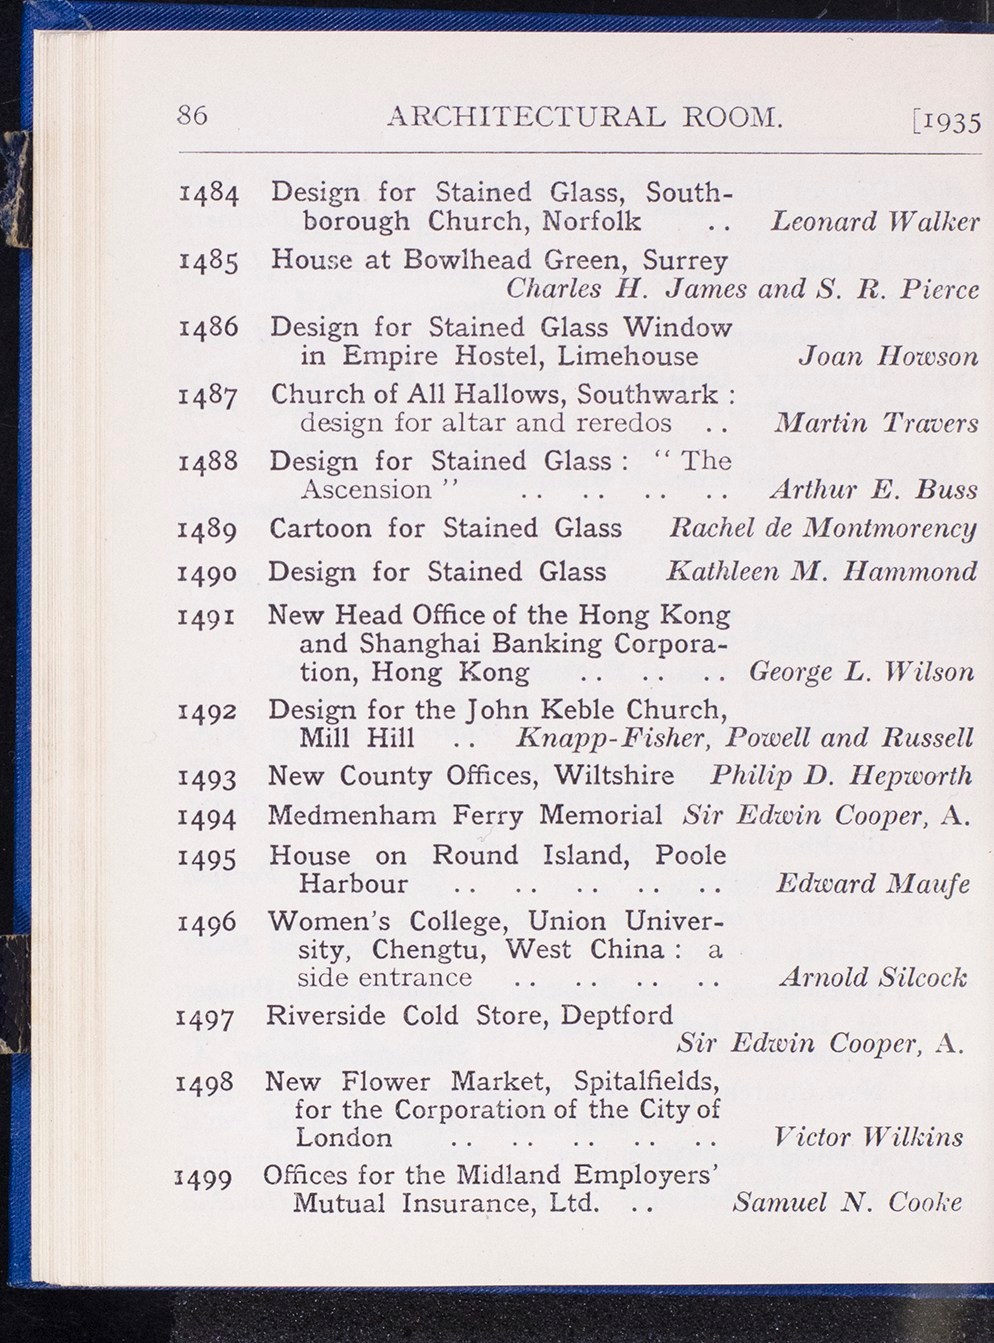 86 ARCHITECTURAL ROOM. [1935
1484 Design for Stained Glass, South-
borough Church, Norfolk .. Leonard Walker
1485 House at Bowlhead Green, Surrey
Charles H. James and S. R. Pierce
1486 Design for Stained Glass Window
in Empire Hostel, Limehouse Joan Howson
1487 Church of All Hallows, Southwark :
design for altar and reredos .. Martin Travers
1488 Design for Stained Glass : “ The
Ascension ” .. .. .. .. Arthur E. Buss
1489 Cartoon for Stained Glass Rachel de Montmorency
1490 Design for Stained Glass Kathleen M. Hammond
1491 New Head Office of the Hong Kong
and Shanghai Banking Corpora-
tion, Hong Kong .. .. .. George L. Wilson
1492 Design for the John Keble Church,
Mill Hill .. Knapp-Fisher, Powell and Russell
1493 New County Offices, Wiltshire Philip D. Hepworth
1494 Medmenham Ferry Memorial Sir Edwin Cooper, A.
1495 House on Round Island, Poole
Harbour .. .. .. .. .. Edward Maufe
1496 Women’s College, Union Univer-
sity, Chengtu, West China : a
side entrance .. .. .. .. Arnold Silcock
1497 Riverside Cold Store, Deptford
Sir Edwin Cooper, A.
1498 New Flower Market, Spitalfields,
for the Corporation of the City of
London .. .. .. .. .. Victor Wilkins
1499 Offices for the Midland Employers’
Mutual Insurance, Ltd. .. Samuel N. Cooke